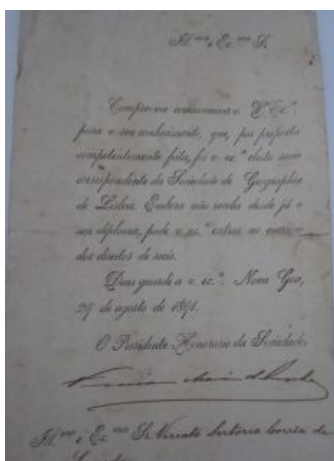 Ill.mo e Ex.mo Sr.
Cumpre-me communicar a V. Ex.ª
para o seu conhecimento, que, por proposta
competentemente feita, foi v. ex.ª eleito socio
correspondente da Sociedade de Geographia
de Lisboa. Embora não receba desde já o
seu diploma, pode v. ex.ª entrar no exercicio
dos direitos de socio.
Deus guarde a v. ex.ª. Nova Goa,
29 de agosto de 1891.
O Presidente Honorario da Sociedade
Ill.mo e Ex.mo Sr. Viriato Sertorio Corrêa de